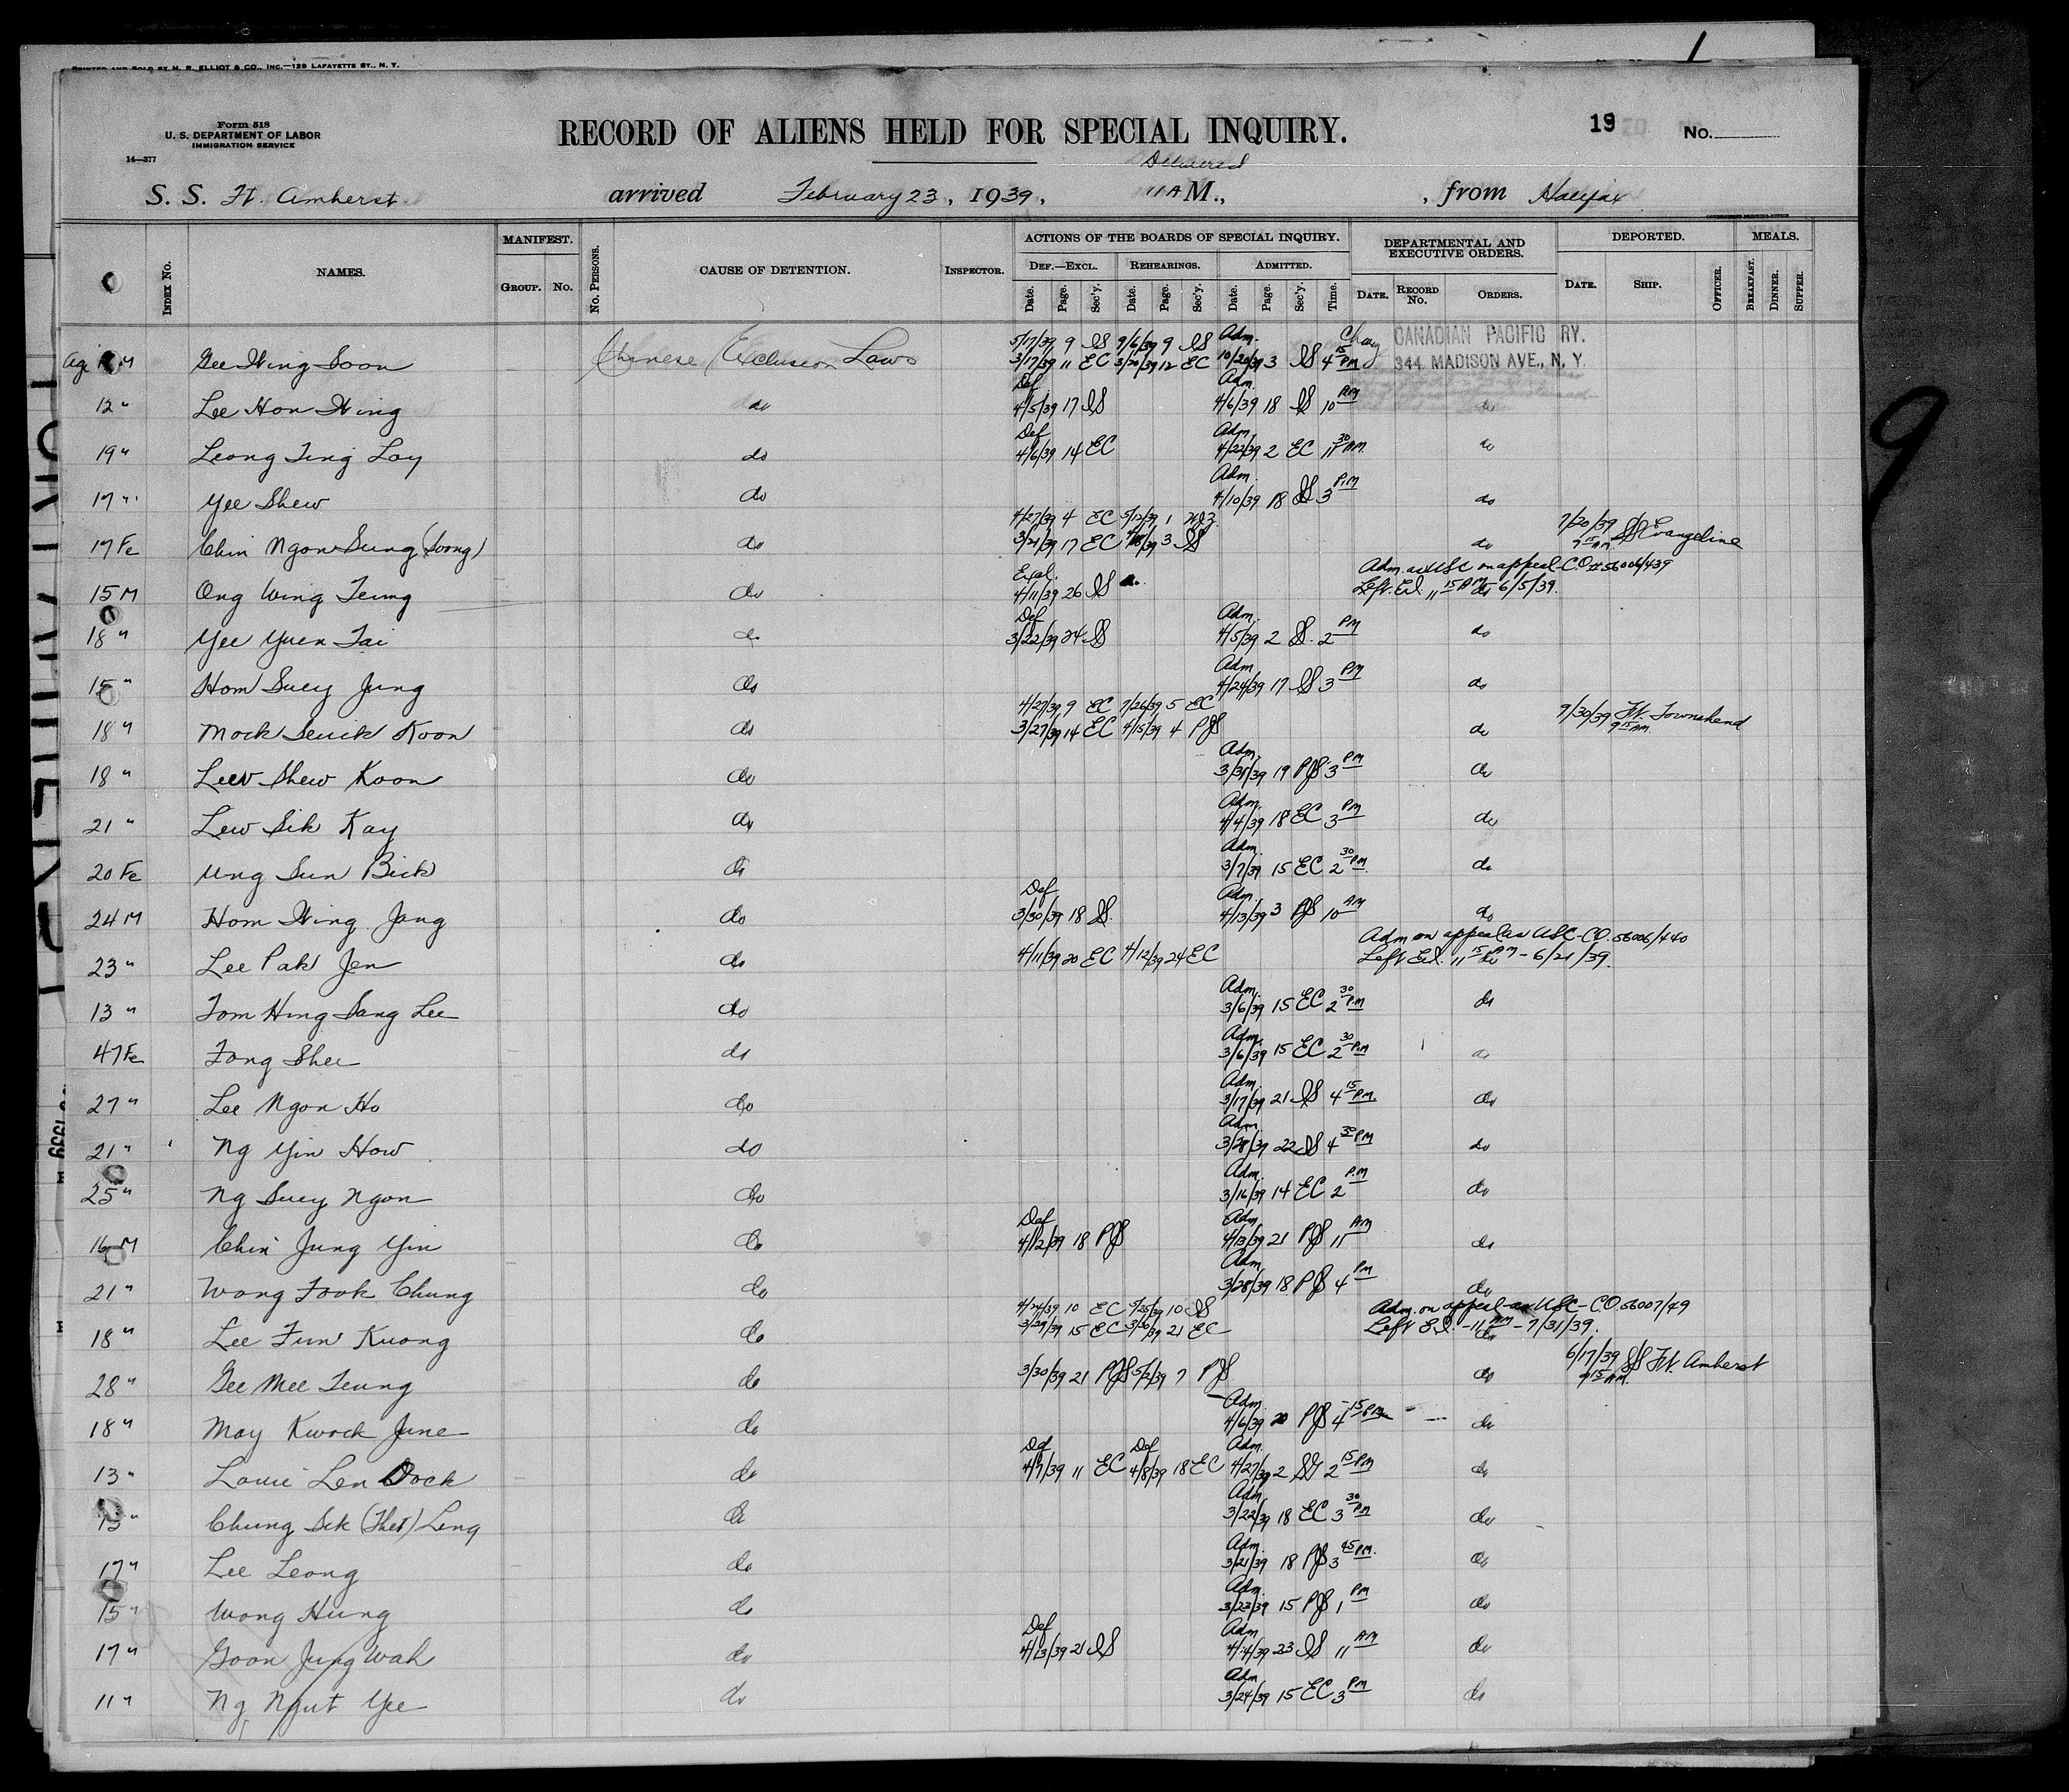 PRINTED AND SOLD BY M. R. ELLIOT & CO., INC.—129 LAFAYETTE ST., N. Y.
1
Form 518
U. S. DEPARTMENT OF LABOR
IMMIGRATION SERVICE
14—377
RECORD OF ALIENS HELD FOR SPECIAL INQUIRY.
19 No.
Delivered
S. S. Ft. Amherst arrived February 23, 1939, 11 A M., , from Halifax
GOVERNMENT PRINTING OFFICE
INDEX NO. NAMES. MANIFEST. GROUP. NO. NO. PERSONS. CAUSE OF DETENTION. INSPECTOR. ACTIONS OF THE BOARDS OF SPECIAL INQUIRY. DEPARTMENTAL AND EXECUTIVE ORDERS. DEPORTED. MEALS.
DEF.—EXCL. REHEARINGS. ADMITTED.
Date. Page. Sec'y. Date. Page. Sec'y. Date. Page. Sec'y. Time. DATE. RECORD NO. ORDERS. DATE. SHIP. OFFICER. BREAKFAST. DINNER. SUPPER.
5/17/39 9 IS 9/6/39 9 IS Adm. CANADIAN PACIFIC RY.
Age M Gee Wing Soon Chinese Exclusion Laws 3/17/39 11 EC 3/20/39 12 EC 10/20/39 3 IS 4 15 PM 344 MADISON AVE., N. Y.
Def Adm.
12 " Lee Hon Wing do 4/5/39 17 IS 4/6/39 18 IS 10 AM do
Def Adm.
19 " Leong Ting Loy do 4/6/39 14 EC 4/22/39 2 EC 11 30 AM do
Adm.
17 " Yee Shew do 4/10/39 18 IS 3 PM do
4/27/39 4 EC 5/12/39 1 7/20/39
17 Fe Chin Ngon Sung (Soong) do 3/21/39 17 EC 3 IS do 9 15 AM SS Evangeline
Excl. Adm. as USC on appeal - C.O. # 56006/439
15 M Ong Wing Teung do 4/11/39 26 IS Left E.I. 11 15 AM do - 6/5/39.
Def Adm.
18 " Yee Yuen Tai do 3/22/39 24 IS 4/5/39 2 IS 2 PM do
Adm.
15 " Hom Suey Jung do 4/24/39 17 IS 3 PM do
4/27/39 9 EC 7/26/39 5 EC
18 " Mock Seuck Koon do 3/27/39 14 EC 4/15/39 4 PJS do 9/30/39 Ft. Townshend 9 15 AM
Adm.
18 " Leew Shew Koon do 3/31/39 19 PJS 3 PM do
Adm.
21 " Lew Sik Kay do 4/4/39 18 EC 3 PM do
Adm.
20 Fe Ung Sun Bick do 3/7/39 15 EC 2 30 PM do
Def Adm.
24 M Hom Wing Jang do 3/30/39 18 IS 4/13/39 3 PJS 10 AM do
Adm on appeal as USC - C.O. 56006/440
23 " Lee Pak Jen do 4/11/39 20 EC 4/12/39 24 EC Left E.I. 11 15 AM do - 6/21/39.
Adm.
13 " Tom Hing Sang Lee do 3/6/39 15 EC 2 30 PM do
Adm.
47 Fe Fong Shee do 3/6/39 15 EC 2 30 PM do
Adm.
27 " Lee Ngon Ho do 3/17/39 21 IS 4 15 PM do
Adm.
21 " Ng Yin How do 3/28/39 22 IS 4 30 PM do
Adm.
25 " Ng Suey Ngon do 3/16/39 14 EC 2 PM do
Def Adm.
16 M Chin Jung Yin do 4/12/39 18 PJS 4/13/39 21 PJS 11 AM do
Adm.
21 " Wong Fook Chung do 3/28/39 18 PJS 4 PM do
4/24/39 10 EC 5/25/39 10 IS Adm. on appeal as USC - C.O. 56007/49
18 " Lee Fun Kuong do 3/29/39 15 EC 21 EC Left E.I. - 11 AM do - 7/31/39.
28 " Gee Mee Teung do 3/30/39 21 PJS 5/2/39 7 PJS do 6/17/39 SS Ft. Amherst 9 15 AM
Adm.
18 " May Kwock June do 4/6/39 20 PJS 4 15 PM do
Def Def Adm.
13 " Louie Len Dock do 4/7/39 11 EC 4/8/39 18 EC 4/27/39 2 2 15 PM do
Adm.
13 " Chung Sik (Thet) Leng do 3/22/39 18 EC 3 30 PM do
Adm.
17 " Lee Leong do 3/21/39 18 PJS 3 45 PM do
Adm.
15 " Wong Hung do 3/23/39 15 PJS 1 PM do
Def Adm.
17 " Goon Jung Wah do 4/13/39 21 IS 4/14/39 23 IS 11 AM do
Adm.
11 " Ng Ngut Yee do 3/24/39 15 EC 3 PM do
9